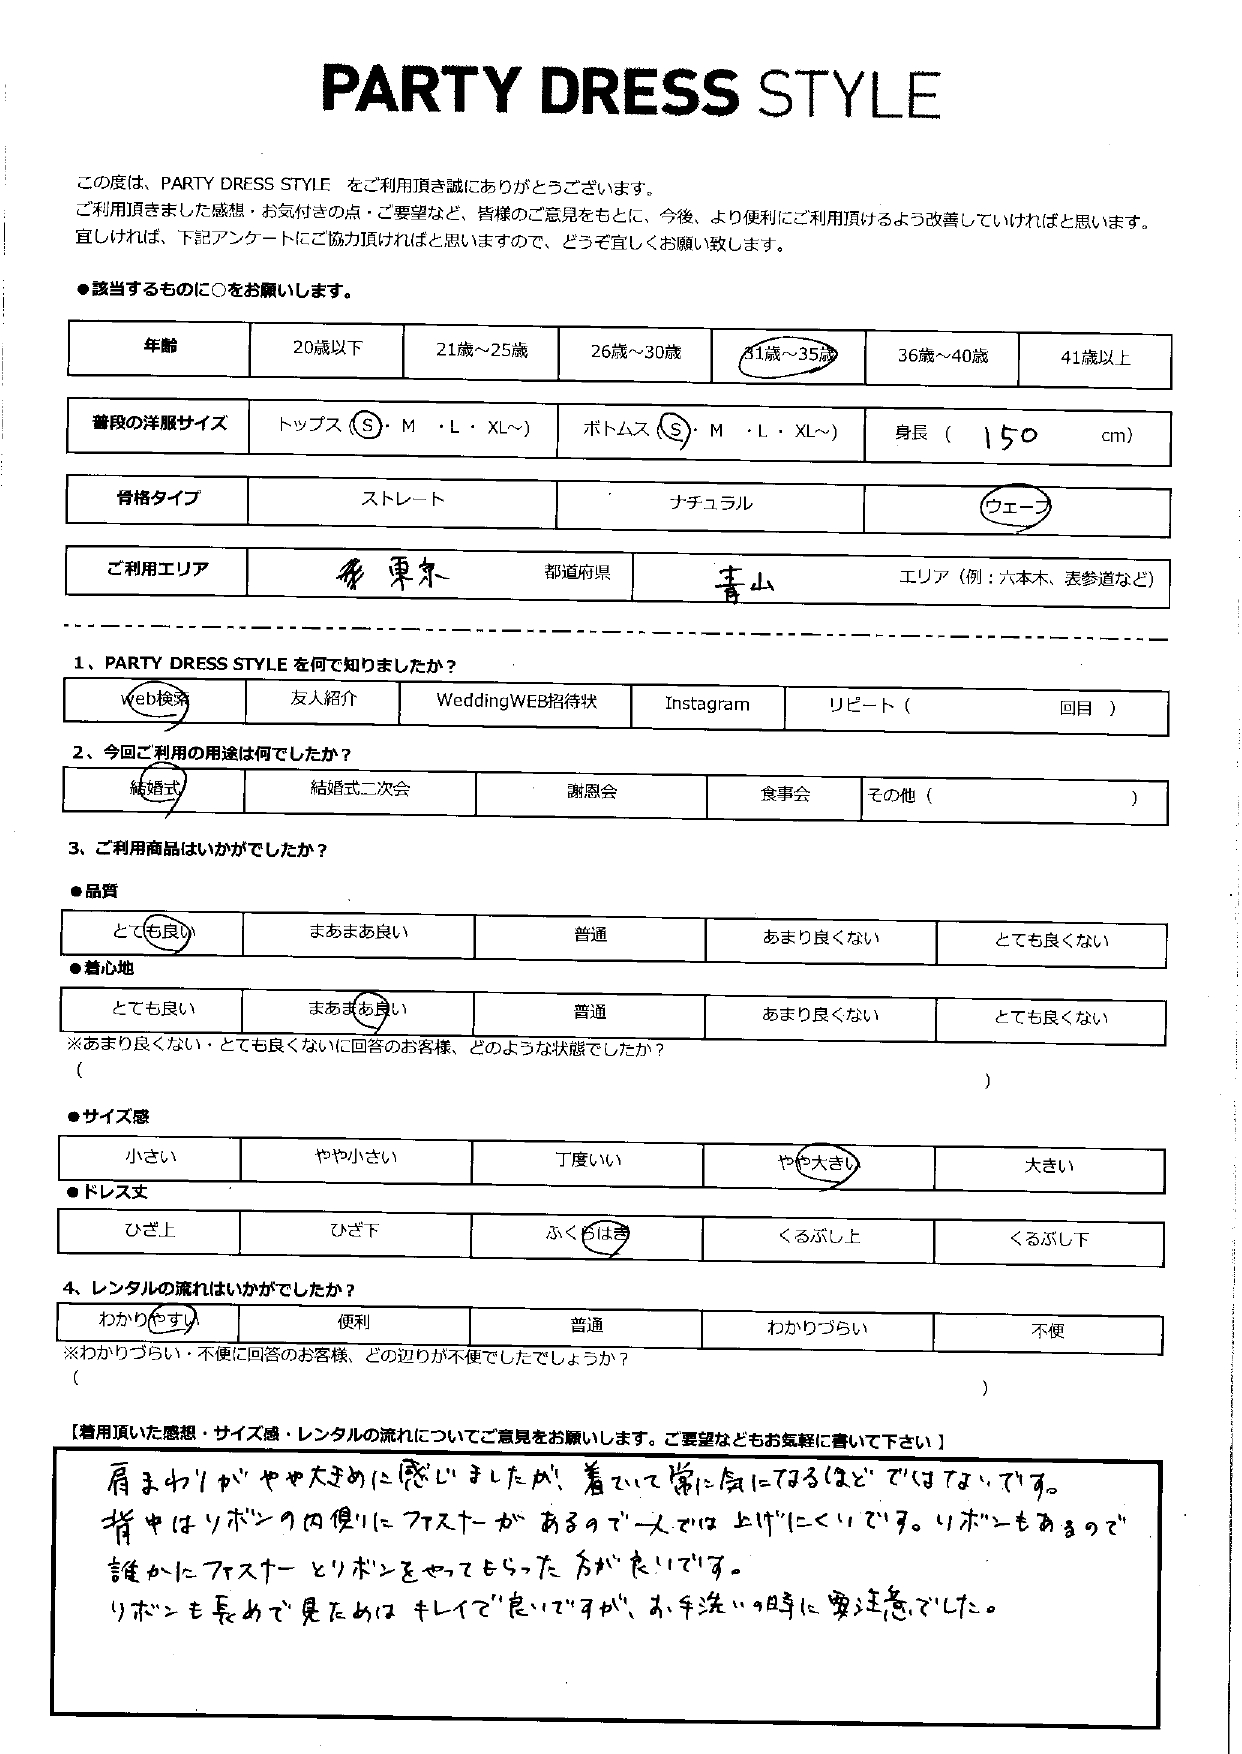 PARTY DRESS STYLE
この度は、PARTY DRESS STYLE をご利用頂き誠にありがとうございます。
ご利用頂きました感想・お気付きの点・ご要望など、皆様のご意見をもとに、今後、より便利にご利用頂けるよう改善していければと思います。
宜しければ、下記アンケートにご協力頂ければと思いますので、どうぞ宜しくお願い致します。
●該当するものに○をお願いします。
年齢 20歳以下 21歳～25歳 26歳～30歳 31歳～35歳 36歳～40歳 41歳以上
普段の洋服サイズ トップス (S・ M ・L・ XL～) ボトムス (S・ M ・L・ XL～) 身長 ( 150 cm)
骨格タイプ ストレート ナチュラル ウェーブ
ご利用エリア 東京 都道府県 青山 エリア（例：六本木、表参道など）
1、PARTY DRESS STYLE を何で知りましたか？
web検索 友人紹介 WeddingWEB招待状 Instagram リピート（ 回目 ）
2、今回ご利用の用途は何でしたか？
結婚式 結婚式二次会 謝恩会 食事会 その他（ ）
3、ご利用商品はいかがでしたか？
●品質
とても良い まあまあ良い 普通 あまり良くない とても良くない
●着心地
とても良い まあまあ良い 普通 あまり良くない とても良くない
※あまり良くない・とても良くないに回答のお客様、どのような状態でしたか？
（ ）
●サイズ感
小さい やや小さい 丁度いい やや大きい 大きい
●ドレス丈
ひざ上 ひざ下 ふくらはぎ くるぶし上 くるぶし下
4、レンタルの流れはいかがでしたか？
わかりやすい 便利 普通 わかりづらい 不便
※わかりづらい・不便に回答のお客様、どの辺りが不便でしたでしょうか？
（ ）
【着用頂いた感想・サイズ感・レンタルの流れについてご意見をお願いします。ご要望などもお気軽に書いて下さい】
肩まわりがやや大きめに感じましたが、着ていて常に気になるほどではないです。
背中はリボンの内側にファスナーがあるので一人では上げにくいです。リボンもあるので
誰かにファスナーとリボンをやってもらった方が良いです。
リボンも長めで見ためはキレイで良いですが、お手洗いの時に要注意でした。